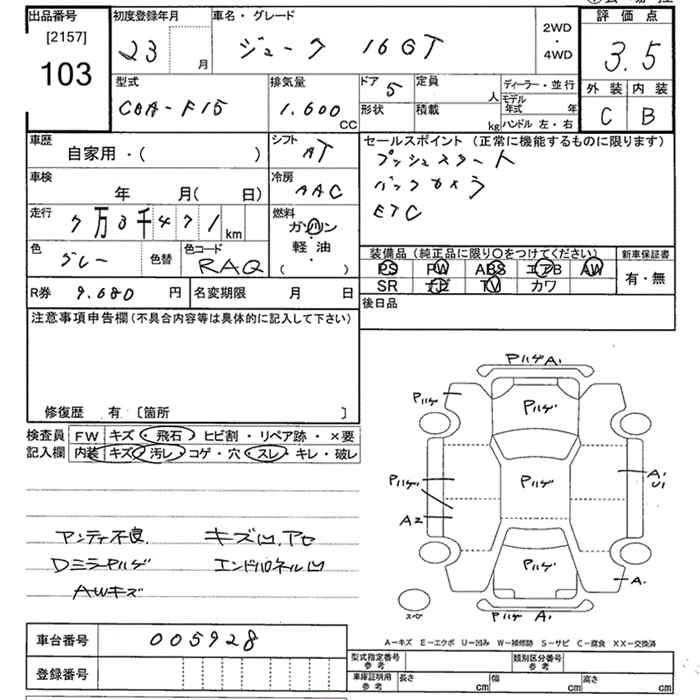 出品番号
[2157]
103
初度登録年月
23 月
車名・グレード
ジューク 16GT
2WD
・
4WD
評価点
3.5
外装 内装
C B
型式
CBA-F15
排気量
1.600 CC
ドア 5
形状
定員 人
積載 kg
ディーラー・並行
モデル年式 年
ハンドル 左・右
車歴
自家用・( )
シフト
AT
車検
年 月( 日)
冷房
AAC
走行
7万3千471 km
燃料
ガソリン
軽油
( )
色
グレー
色替
色コード
RAQ
R券 9.680 円
名変期限 月 日
セールスポイント (正常に機能するものに限ります)
プッシュスタート
バックカメラ
ETC
装備品 (純正品に限り〇をつけてください)
PS PW ABS エアB AW
SR ナビ TV カワ
新車保証書
有・無
後日品
注意事項申告欄(不具合内容等は具体的に記入して下さい)
修復歴 有 〔箇所 〕
検査員
記入欄
FW キズ・飛石・ヒビ割・リペア跡・×要
内装 キズ・汚レ・コゲ・穴・スレ・キレ・破レ
アンティ不良. キズ凹.アセ
Dミラーハゲ エンドパネル凹
AWキズ
PハゲA1
Pハゲ
Pハゲ
Pハゲ
Pハゲ
A2
A1
U1
Pハゲ
A1
スペア
Pハゲ A1
A－キズ E－エクボ U－凹み W－補修跡 S－サビ C－腐食 XX－交換済
車台番号 005928
登録番号
型式指定番号
参考
類別区分番号
参考
車庫証明用
参考
長さ cm
幅 cm
高さ cm